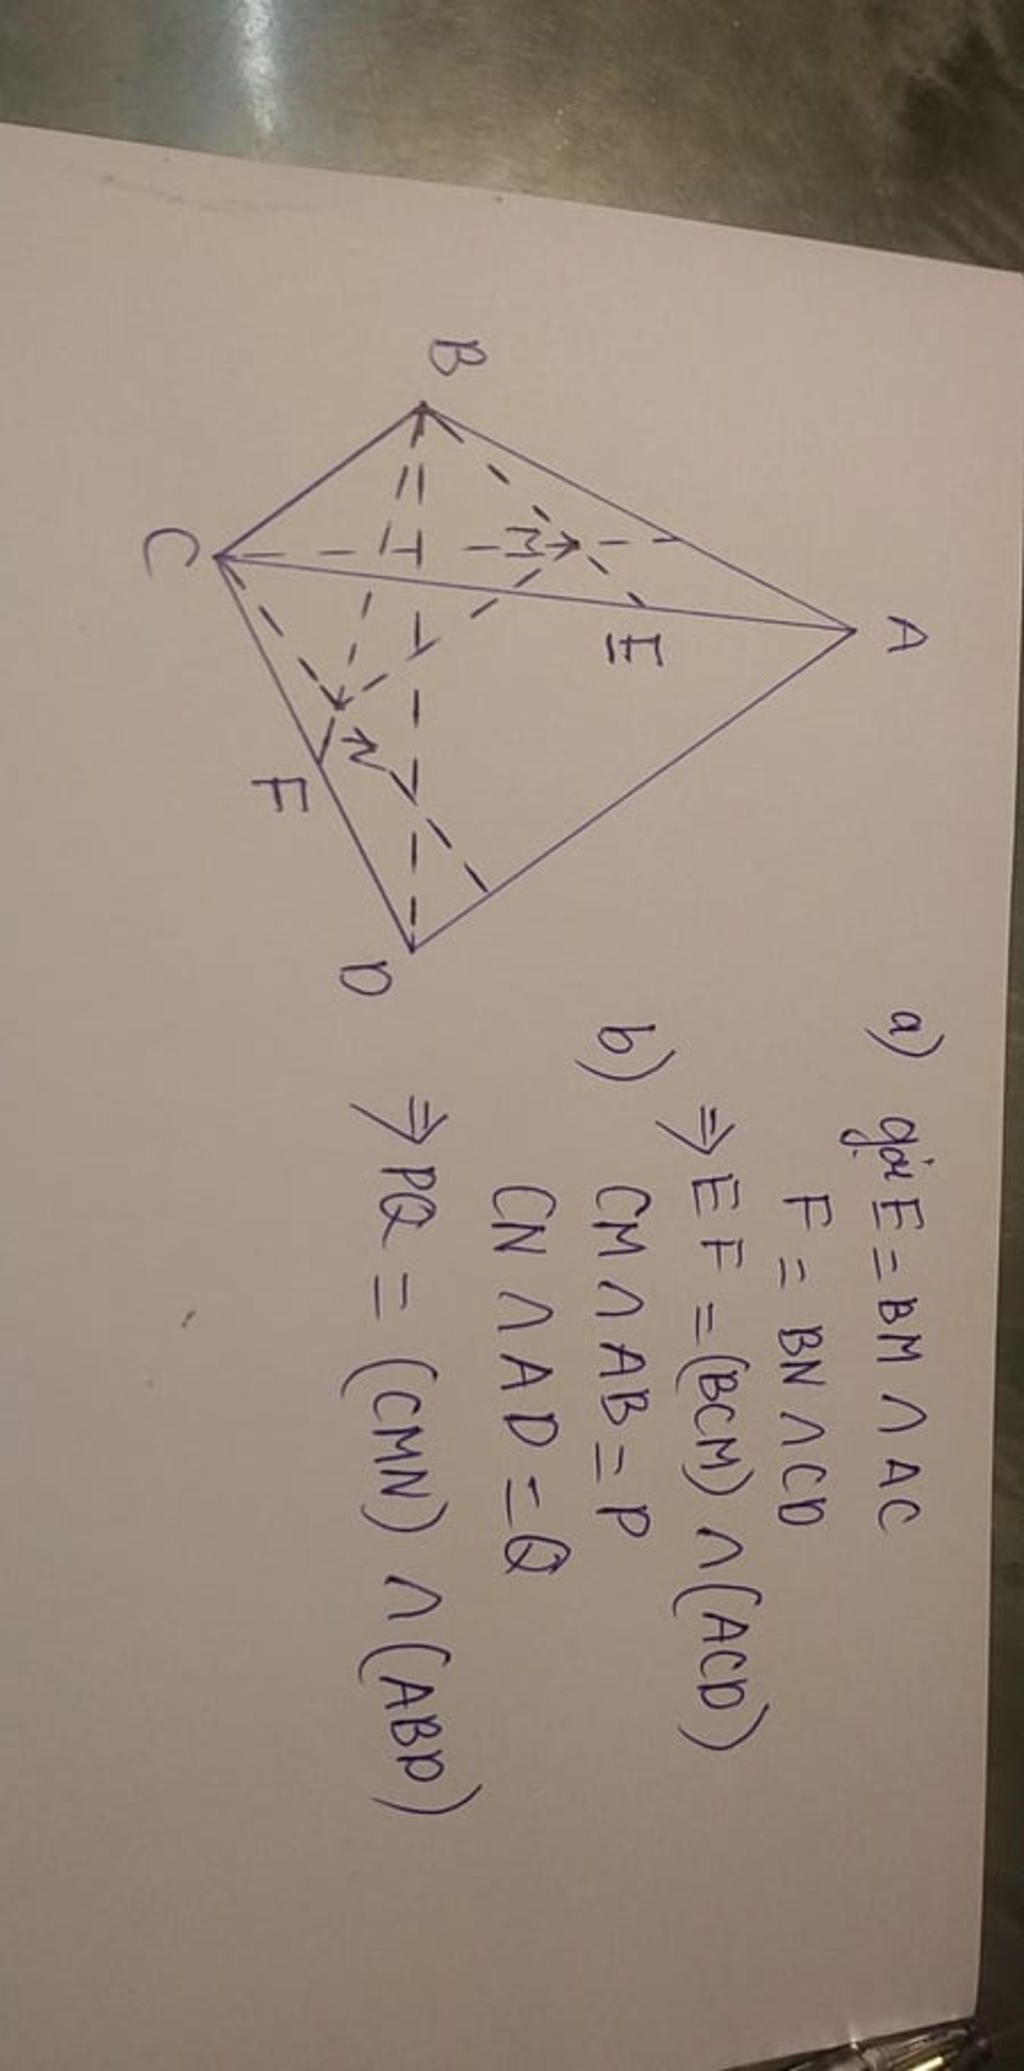 A
B
M
E
N
C
F
D
a) gọi E = BM ∩ AC
F = BN ∩ CD
⇒ EF = (BCM) ∩ (ACD)
b) CM ∩ AB = P
CN ∩ AD = Q
⇒ PQ = (CMN) ∩ (ABD)